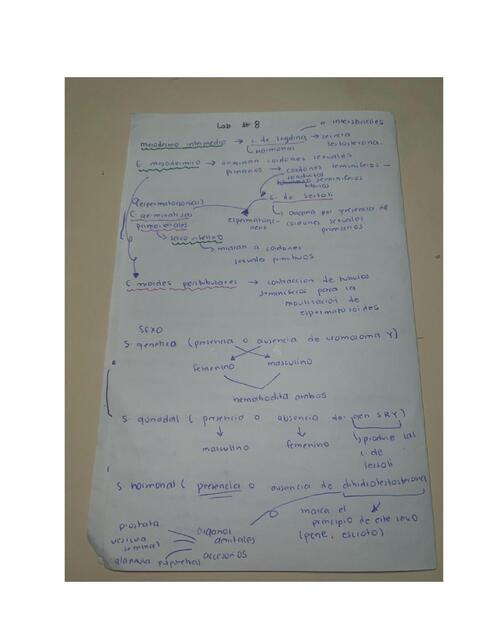 Lab # 8
o intersticiales
mesodermo intermedio → c. de leyding → secreta
hormonas testosterona.
C. mesodermo → originan cordones sexuales
primarios → cordones seminíferos
conductos
seminíferos
tubulos
C. de Sertoli
(espermatogonias)
C. germinativas
primordiales
espermatogenesis
→ origina por presencia de
cordones sexuales
primarios
→ saco vitelino
→ migran a cordones
sexuales primitivos
C. mioides peritubulares → contracción de tubulos
seminíferos para la
movilización de
espermatozoides
SEXO
S. genetico (presencia o ausencia de cromosoma Y)
femenino masculino
hermafrodita ambos
S. gonadal (presencia o ausencia de gen SRY)
masculino femenino
→ produce las
c. de
sertoli
S. hormonal (presencia o ausencia de dihidrotestosterona
marca el
principio de este sexo
(pene, escroto)
prostata
vesicula
seminal
glandula
organos
genitales
accesorios